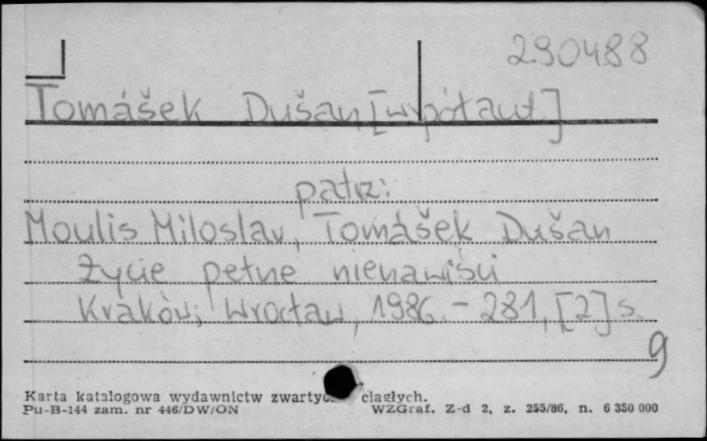 290488
Tomášek Dušan [współaut]
patrz:
Moulis Miloslav, Tomášek Dušan
Życie pełne nienawiści
Kraków; Wrocław, 1986. - 281, [2] s.
9
Karta katalogowa wydawnictw zwartych ciągłych.
Pu-B-144 zam. nr 446/DW/ON WZGraf. Z-d 2, z. 255/86, n. 6 350 000